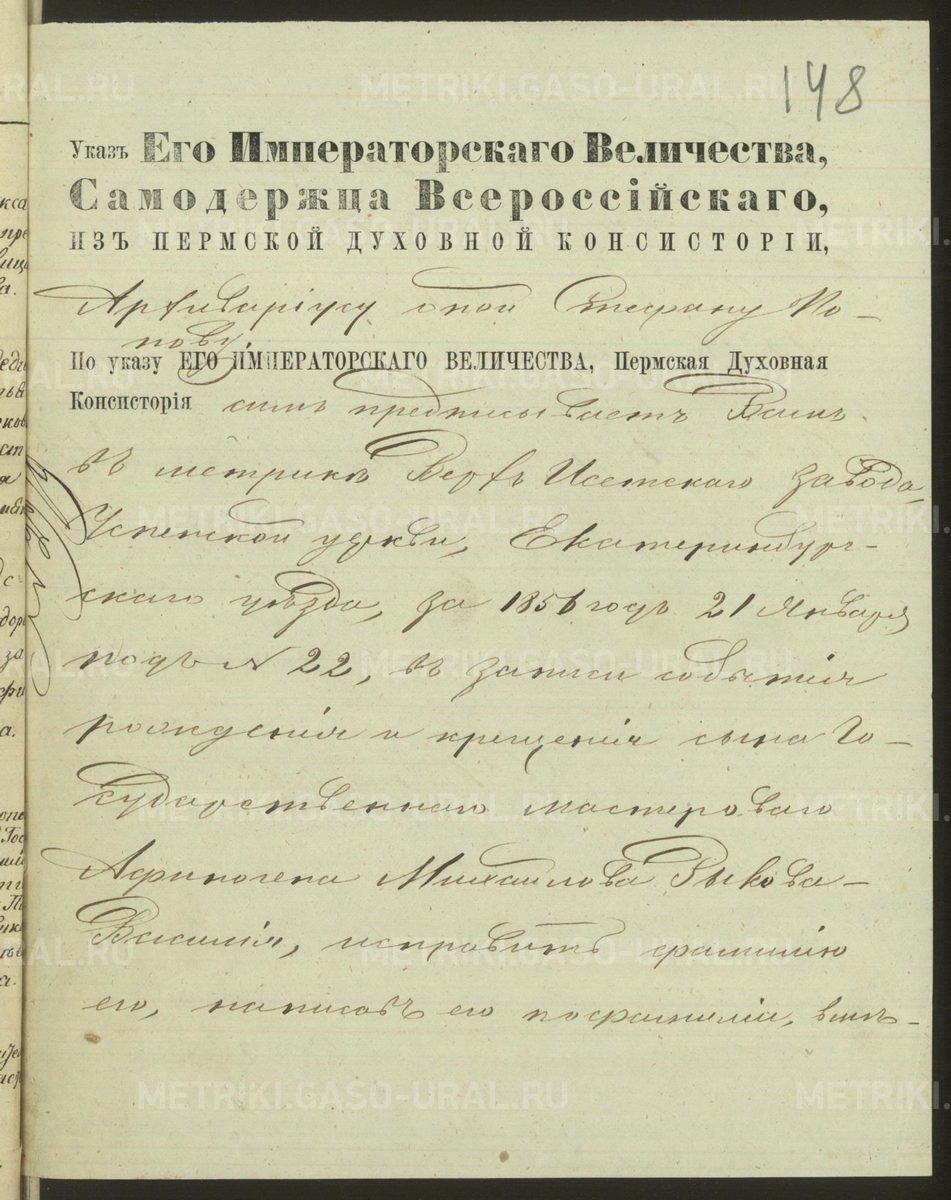 148
Указъ Его Императорскаго Величества,
Самодержца Всероссійскаго,
ИЗЪ ПЕРМСКОЙ ДУХОВНОЙ КОНСИСТОРІИ,
Архиваріусу оной Стефану По-
пову
По указу ЕГО ИМПЕРАТОРСКАГО ВЕЛИЧЕСТВА, Пермская Духовная
Консисторія симъ предписываетъ Вамъ
въ метрикѣ Верхъ Исетскаго завода,
Успенской церкви, Екатеринбург-
скаго уѣзда, за 1856 годъ 21 Января
подъ N 22, въ записи событія
рожденія и крещенія сына Го-
сударственнаго мастероваго
Афиногена Михайлова Зыкова-
Василія, исправить фамилію
его, написавъ его по фамиліи, вмѣ-
METRIKI.GASO-URAL.RU